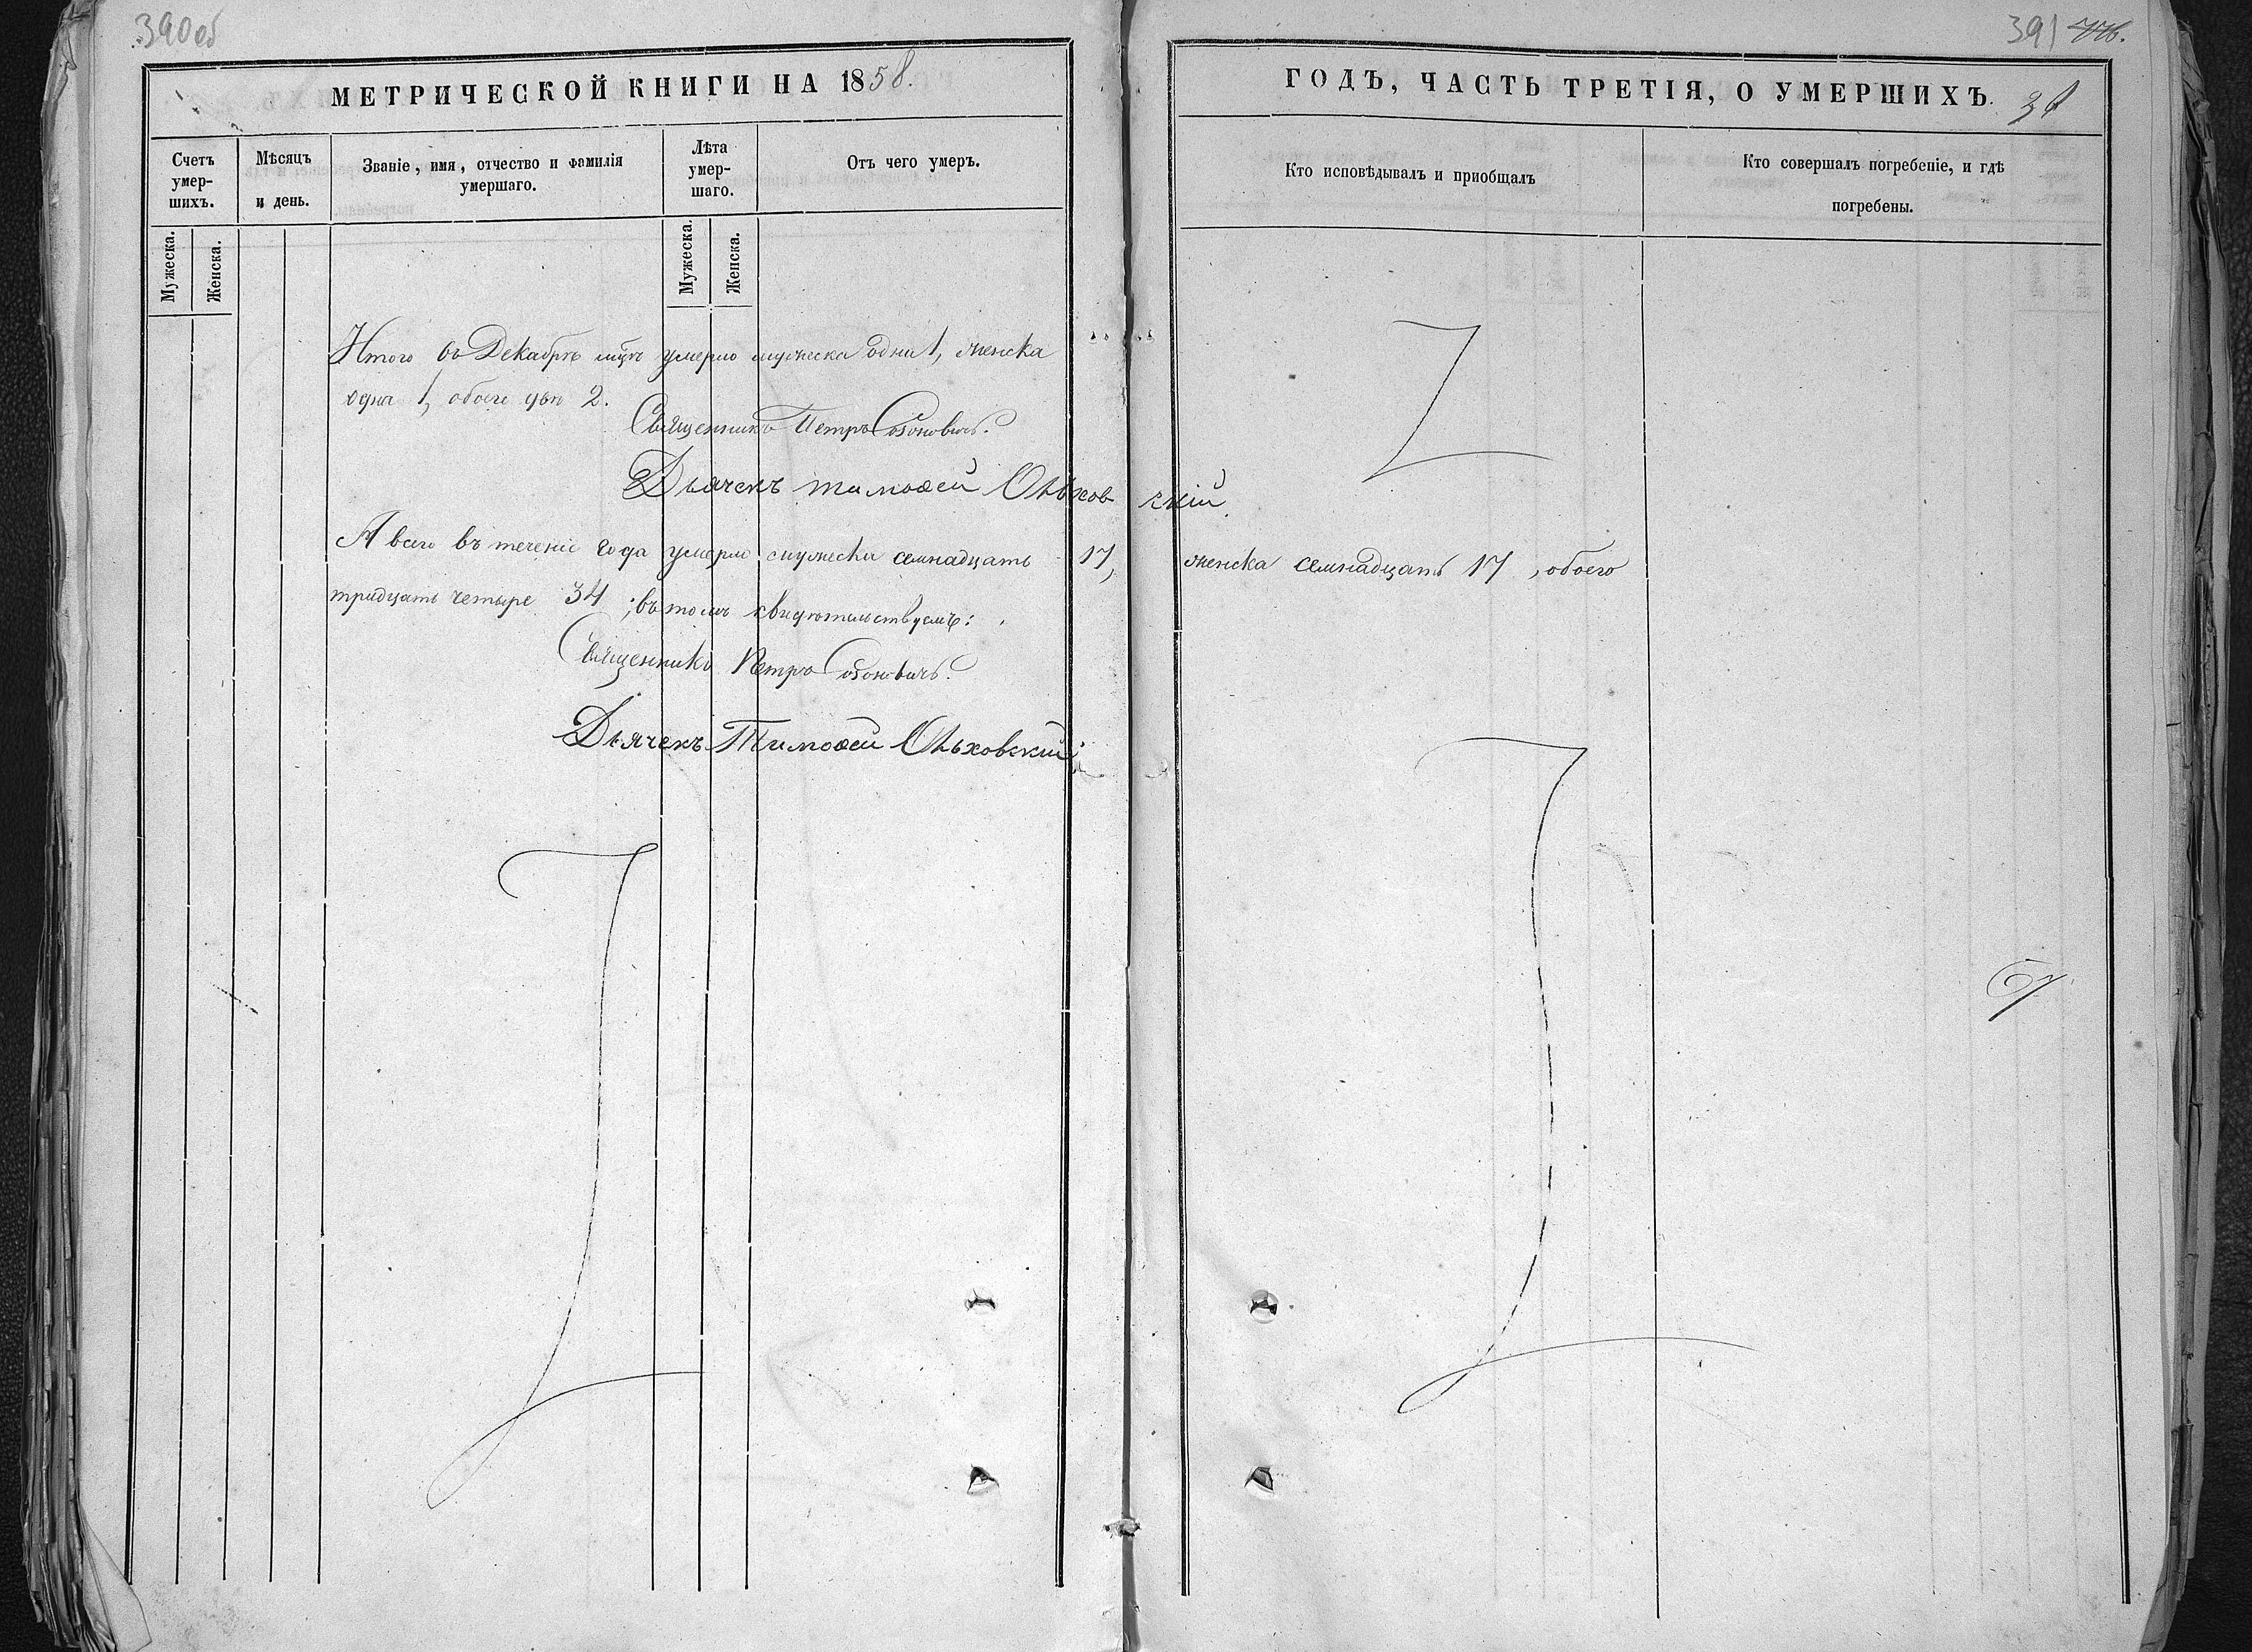 390об
МЕТРИЧЕСКОЙ КНИГИ НА 1858.
Счетъ умер-шихъ.
Мѣсяцъ и день.
Званіе, имя, отчество и фамилія умершаго.
Лѣта умер-шаго.
Отъ чего умеръ.
Мужеска.
Женска.
Мужеска.
Женска.
Итого въ Декабрѣ мцѣ умерло мужеска одинъ 1, женска
одна 1, обоего два 2.
Священникъ Петръ Созоновичъ.
Дьячекъ Тимоѳей Ольховскій.
А всего въ теченіе года умерло мужеска семнадцать 17, женска семнадцать 17, обоего
тридцать четыре 34; въ томъ свидѣтельствуемъ:
Священникъ Петръ Созоновичъ.
Дьячекъ Тимоѳей Ольховскій.
391
ГОДЪ, ЧАСТЬ ТРЕТІЯ, О УМЕРШИХЪ.
Кто исповѣдывалъ и пріобщалъ
Кто совершалъ погребеніе, и гдѣ
погребены.